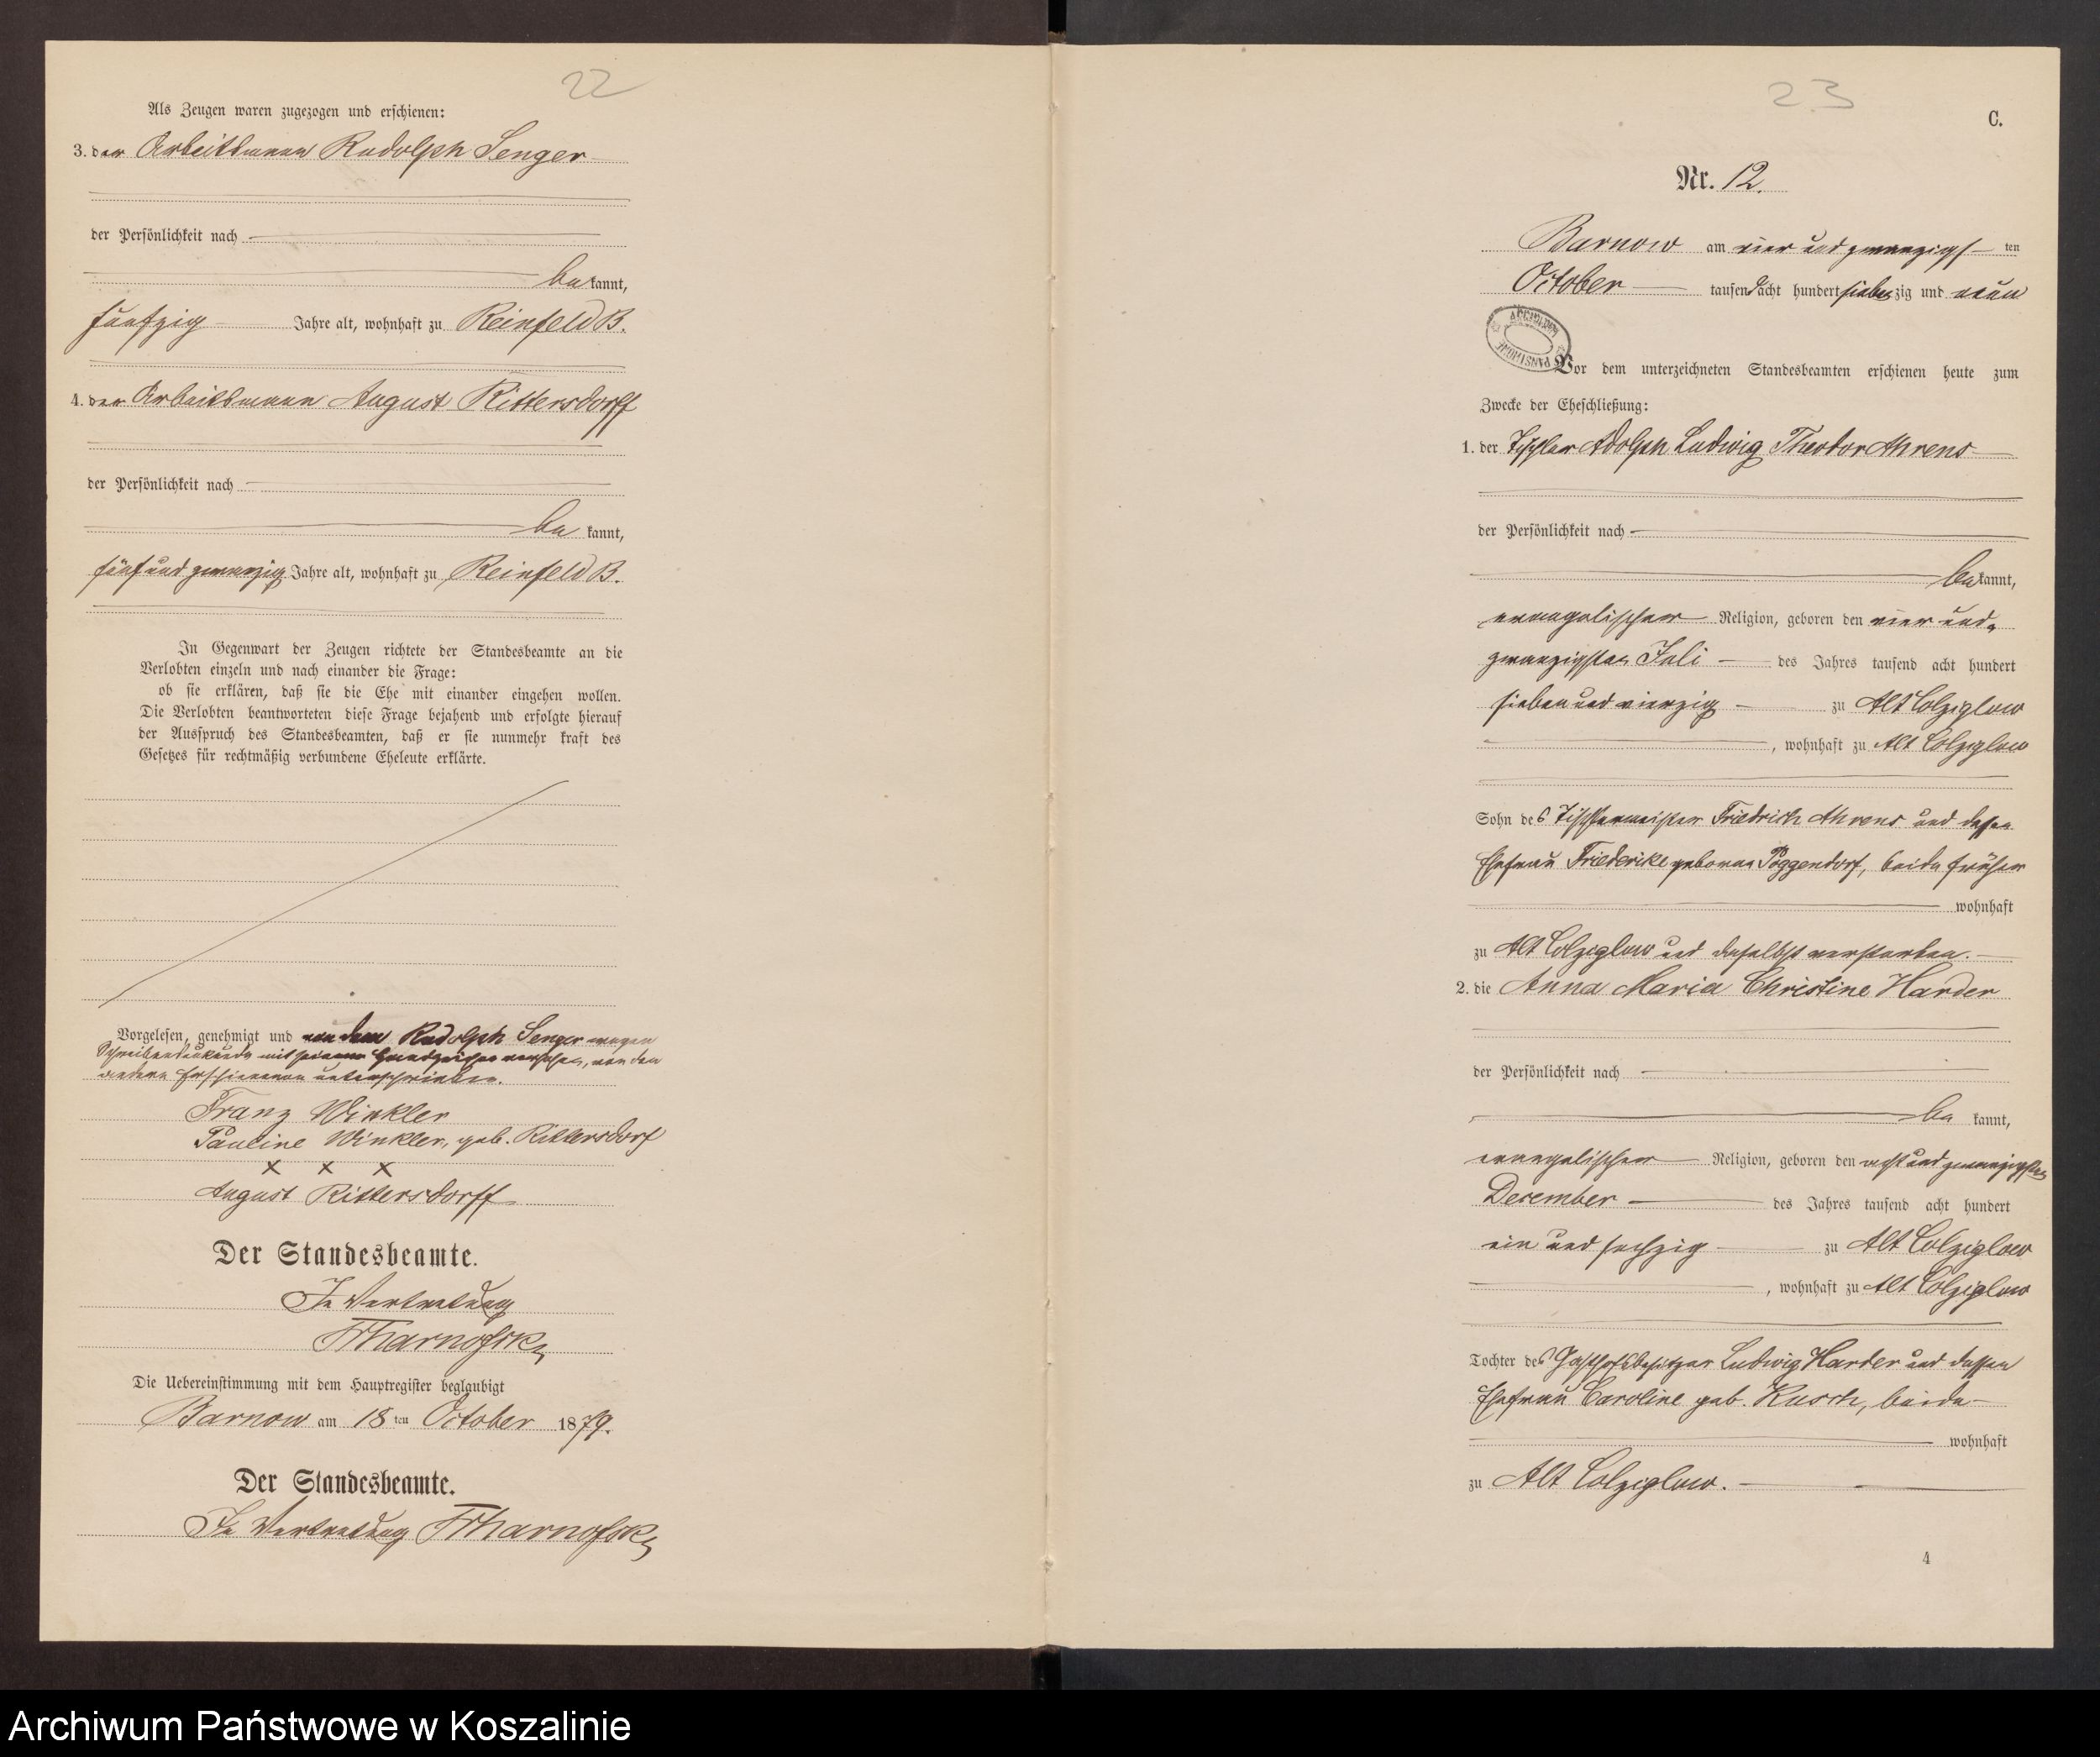 22
Als Zeugen waren zugezogen und erschienen:
3. der Arbeitsmann Rudolph Senger
der Persönlichkeit nach
bekannt,
fünfzig Jahre alt, wohnhaft zu Reinfeld B.
4. der Arbeitsmann August Rittersdorff
der Persönlichkeit nach
bekannt,
fünf und zwanzig Jahre alt, wohnhaft zu Reinfeld B.
In Gegenwart der Zeugen richtete der Standesbeamte an die
Verlobten einzeln und nach einander die Frage:
ob sie erklären, daß sie die Ehe mit einander eingehen wollen.
Die Verlobten beantworteten diese Frage bejahend und erfolgte hierauf
der Ausspruch des Standesbeamten, daß er sie nunmehr kraft des
Gesetzes für rechtmäßig verbundene Eheleute erklärte.
Vorgelesen, genehmigt und von dem Rudolph Senger wegen
Schreibensunkunde mit seinem Handzeichen versehen, von den
andern Erschienenen unterschrieben.
Franz Winkler
Pauline Winkler, geb. Rittersdorf
x x x
August Rittersdorff
Der Standesbeamte.
In Vertretung
Die Uebereinstimmung mit dem Hauptregister beglaubigt
Barnow am 18 ten October 1879.
Der Standesbeamte.
In Vertretung
23
C.
Nr. 12.
Barnow am vier und zwanzigsten
October tausend acht hundert siebenzig und neun
Vor dem unterzeichneten Standesbeamten erschienen heute zum
Zwecke der Eheschließung:
1. der Tischler Adolph Ludwig Theodor Ahrens
der Persönlichkeit nach
bekannt,
evangelischer Religion, geboren den vier und
zwanzigsten Juli des Jahres tausend acht hundert
sieben und vierzig zu Alt Colziglow
, wohnhaft zu Alt Colziglow
Sohn des Tischlermeister Friedrich Ahrens und dessen
Ehefrau Friederike geborene Poggendorf, beide früher
wohnhaft
zu Alt Colziglow und daselbst verstorben.
2. die Anna Maria Christine Harder
der Persönlichkeit nach
bekannt,
evangelischer Religion, geboren den acht und zwanzigsten
December des Jahres tausend acht hundert
ein und sechzig zu Alt Colziglow
, wohnhaft zu Alt Colziglow
Tochter des Gasthofsbesitzer Ludwig Harder und dessen
Ehefrau Caroline geb. Kusch, beide
wohnhaft
zu Alt Colziglow.
4
Archiwum Państwowe w Koszalinie